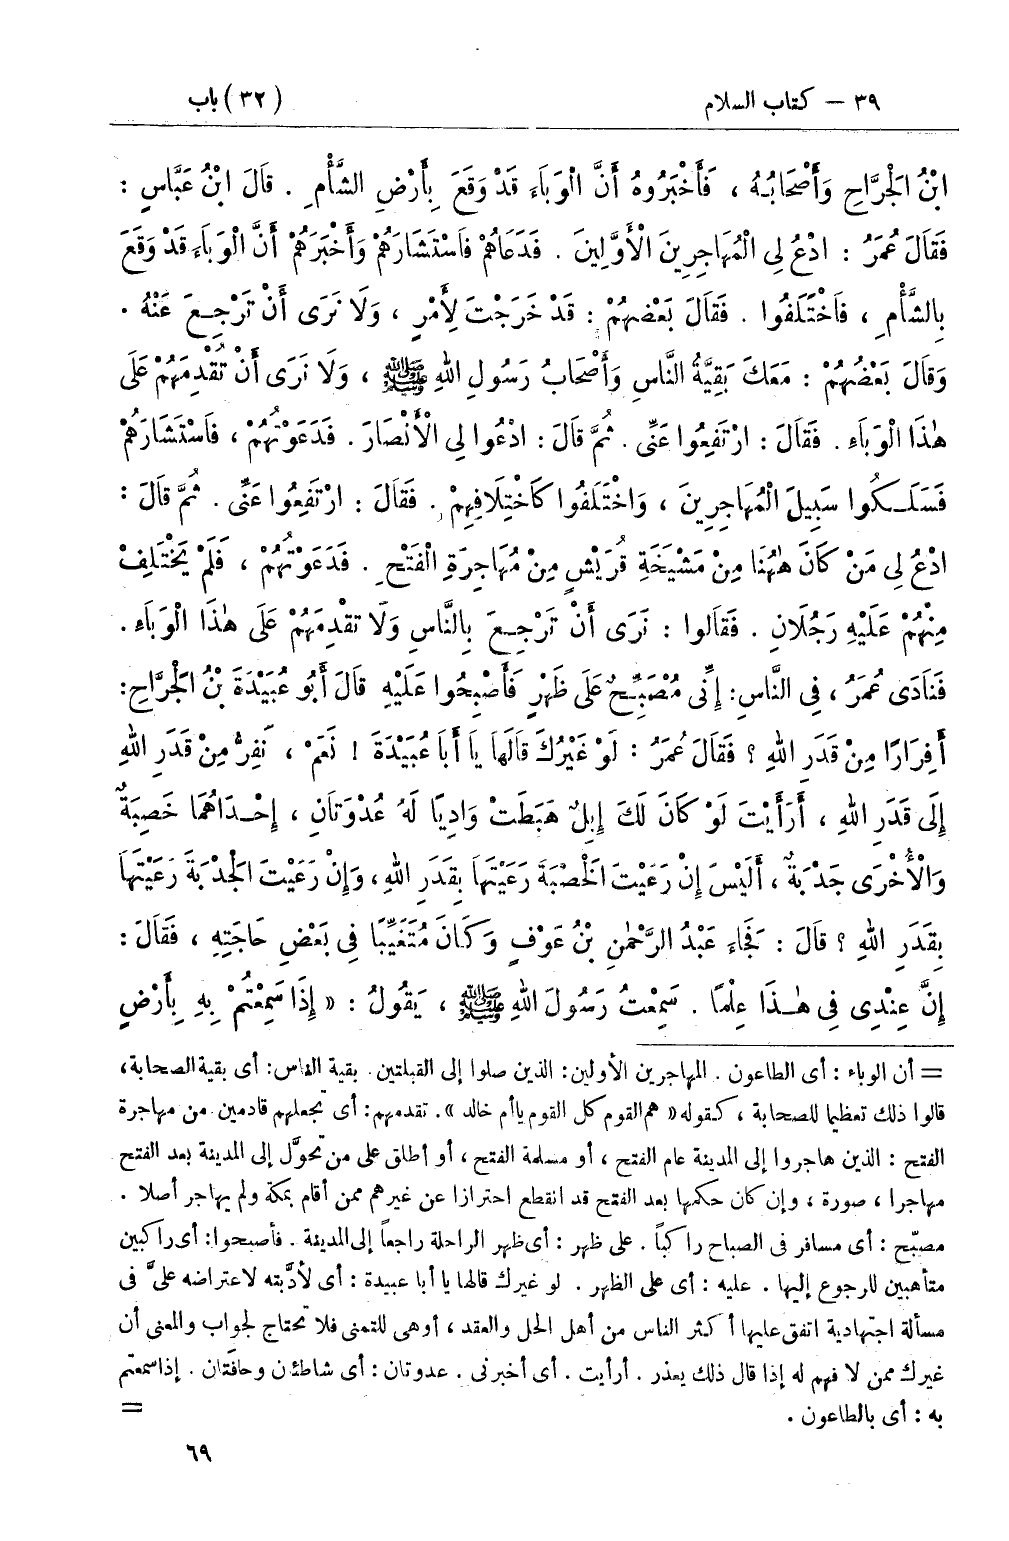 ٣٩ – كتاب السلام (٣٢) باب
ابْنُ الْجَرَّاحِ وَأَصْحَابُهُ ، فَأَخْبَرُوهُ أَنَّ الْوَبَاءَ قَدْ وَقَعَ بِأَرْضِ الشَّأْمِ . قَالَ ابْنُ عَبَّاسٍ :
فَقَالَ عُمَرُ : ادْعُ لِى الْمُهَاجِرِينَ الْأَوَّلِينَ . فَدَعَاهُمْ فَاسْتَشَارَهُمْ وَأَخْبَرَهُمْ أَنَّ الْوَبَاءَ قَدْ وَقَعَ
بِالشَّأْمِ ، فَاخْتَلَفُوا . فَقَالَ بَعْضُهُمْ : قَدْ خَرَجْتَ لِأَمْرٍ ، وَلَا نَرَى أَنْ تَرْجِعَ عَنْهُ .
وَقَالَ بَعْضُهُمْ : مَعَكَ بَقِيَّةُ النَّاسِ وَأَصْحَابُ رَسُولِ اللهِ ﷺ ، وَلَا نَرَى أَنْ تُقْدِمَهُمْ عَلَى
هٰذَا الْوَبَاءِ . فَقَالَ : ارْتَفِعُوا عَنِّى . ثُمَّ قَالَ : ادْعُوا لِى الْأَنْصَارَ . فَدَعَوْتُهُمْ ، فَاسْتَشَارَهُمْ
فَسَلَكُوا سَبِيلَ الْمُهَاجِرِينَ ، وَاخْتَلَفُوا كَاخْتِلَافِهِمْ . فَقَالَ : ارْتَفِعُوا عَنِّى . ثُمَّ قَالَ :
ادْعُ لِى مَنْ كَانَ هٰهُنَا مِنْ مَشْيَخَةِ قُرَيْشٍ مِنْ مُهَاجِرَةِ الْفَتْحِ . فَدَعَوْتُهُمْ ، فَلَمْ يَخْتَلِفْ
مِنْهُمْ عَلَيْهِ رَجُلَانِ . فَقَالُوا : نَرَى أَنْ تَرْجِعَ بِالنَّاسِ وَلَا تُقْدِمَهُمْ عَلَى هٰذَا الْوَبَاءِ .
فَنَادَى عُمَرُ ، فِى النَّاسِ : إِنِّى مُصْبِحٌ عَلَى ظَهْرٍ فَأَصْبِحُوا عَلَيْهِ قَالَ أَبُو عُبَيْدَةَ بْنُ الْجَرَّاحِ :
أَفِرَارًا مِنْ قَدَرِ اللهِ ؟ فَقَالَ عُمَرُ : لَوْ غَيْرُكَ قَالَهَا يَا أَبَا عُبَيْدَةَ ! نَعَمْ ، نَفِرُّ مِنْ قَدَرِ اللهِ
إِلَى قَدَرِ اللهِ ، أَرَأَيْتَ لَوْ كَانَ لَكَ إِبِلٌ هَبَطَتْ وَادِيًا لَهُ عُدْوَتَانِ ، إِحْدَاهُمَا خَصِبَةٌ
وَالْأُخْرَى جَدْبَةٌ ، أَلَيْسَ إِنْ رَعَيْتَ الْخَصْبَةَ رَعَيْتَهَا بِقَدَرِ اللهِ ، وَإِنْ رَعَيْتَ الْجَدْبَةَ رَعَيْتَهَا
بِقَدَرِ اللهِ ؟ قَالَ : فَجَاءَ عَبْدُ الرَّحْمٰنِ بْنُ عَوْفٍ وَكَانَ مُتَغَيِّبًا فِى بَعْضِ حَاجَتِهِ ، فَقَالَ :
إِنَّ عِنْدِى فِى هٰذَا عِلْمًا . سَمِعْتُ رَسُولَ اللهِ ﷺ ، يَقُولُ : « إِذَا سَمِعْتُمْ بِهِ بِأَرْضٍ
= أن الوباء : أى الطاعون . المهاجرين الأولين : الذين صلوا إلى القبلتين . بقية الناس : أى بقية الصحابة ،
قالوا ذلك تعظيما للصحابة ، كقوله « هم القوم كل القوم يا أم خالد » . تقدمهم : أى تجعلهم قادمين . من مهاجرة
الفتح : الذين هاجروا إلى المدينة عام الفتح ، أو مسلمة الفتح ، أو أطلق على من تحوَّل إلى المدينة بعد الفتح
مهاجرا ، صورة ، وإن كان حكمها بعد الفتح قد انقطع احترازا عن غيرهم ممن أقام بمكة ولم يهاجر أصلا .
مصبّح : أى مسافر فى الصباح راكباً . على ظهر : أى ظهر الراحلة راجعاً إلى المدينة . فأصبحوا : أى راكبين
متأهبين للرجوع إليها . عليه : أى على الظهر . لو غيرك قالها يا أبا عبيدة : أى لأدَّبته لاعتراضه علىَّ فى
مسألة اجتهادية اتفق عليها أكثر الناس من أهل الحل والعقد ، أو هى للتمنى فلا تحتاج لجواب والمعنى أن
غيرك ممن لا فهم له إذا قال ذلك يعذر . أرأيت . أى أخبرنى . عدوتان : أى شاطئان وحافتان . إذا سمعتم
به : أى بالطاعون . =
٦٩